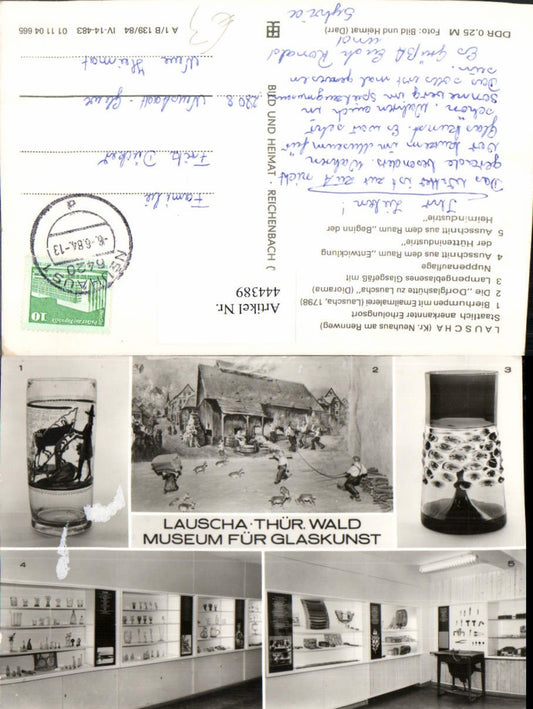 LAUSCHA (Kr. Neuhaus am Rennweg)
Staatlich anerkannter Erholungsort
1 Bierhumpen mit Emailmalerei (Lauscha, 1798)
2 Die „Dorfglashütte zu Lauscha" (Diorama)
3 Lampengeblasenes Glasgefäß mit
Nuppenauflage
4 Ausschnitt aus dem Raum „Entwicklung
der Hüttenindustrie"
5 Ausschnitt aus dem Raum „Beginn der
Heimindustrie"
Ihr Lieben!
Das Wetter ist zur Zeit nicht
gerade besonders. Wahren
vor kurzem im Museum für
Glaskunst. Es war sehr
schön. Wahren auch in
Sonneberg im Spielzeugmuseum.
Das
Es grüßt Euch Ronald
und
Sylvia
DDR 0,25 M Foto: Bild und Heimat (Darr)
BILD UND HEIMAT · REICHENBACH (
A 1/B 139/84 IV-14-483 01 11 04 665
Familie
Fritz
Neue Heimat
6420
-6.6.84-13
a
10
Artikel Nr.
444389
€3
1
2
3
LAUSCHA · THÜR. WALD
MUSEUM FÜR GLASKUNST
4
5